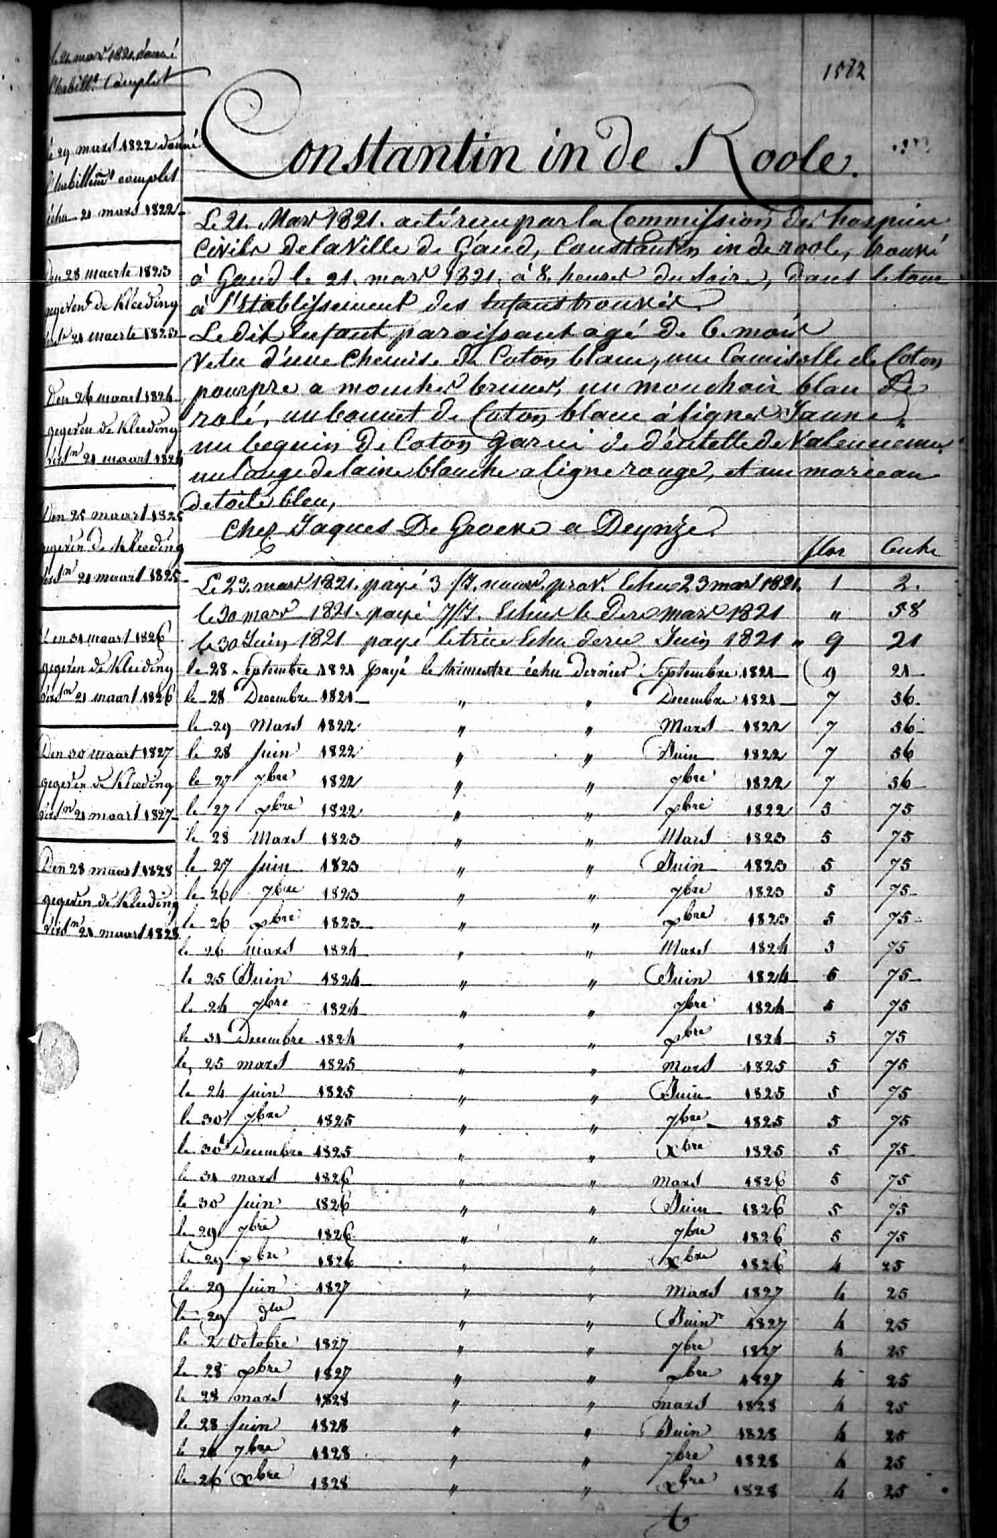 1582
Constantin in de Roole.
le 21 mars 1821 donné
l'habillt complet
le 29 mars 1822 donné
l'habillemt complet
échu 21 mars 1822
Den 28 maerte 1823
gegeven de kleeding
21 maerte 1823
Den 26 maart 1824
gegeven de kleeding
verstn 21 maart 1824
Den 25 maart 1825
gegeven de kleeding
verstn 21 maart 1825
Den 31 maart 1826
gegeven de kleeding
verstn 21 maart 1826
Den 30 maart 1827
gegeven de kleeding
verstn 21 maart 1827
Den 28 maart 1828
gegeven de kleeding
verstn 21 maart 1828
Le 21. Mars 1821. a été reçu par la Commission des hospices
Civils de la Ville de Gand, Constantin in de roole, trouvé
à Gand le 21. mars 1821. à 8. heures du soire, dans le tour
à l'Etablissement des Enfans trouvés
Le dit Enfant paraissant agé de 6. mois
Vetu d'une chemise de Coton blanc, une Camisolle de Coton
pourpre a mouches brunes, un mouchoir blan de
rolé, un bonnet de Coton blanc à lignes Jaune,
un beguin de Coton garni de dentelle de Valencienne,
un lange de laine blanche a ligne rouge, et un morceau
de toile bleu,
Chez Jaques De Groeve a Deynze
flor Cents
Le 23. mars 1821. payé 3 Echu 23 mars 1821. 1 2.
le 30 mars 1821. payé 7/J. Echus le Der mars 1821 " 58
le 30 Juin 1821 payé le trice Echu derer Juin 1821 " 9 21
le 28 Septembre 1821 payé le trimestre échu dernier Septembre 1821 9 21
le 28 Decembre 1821 " " Decembre 1821 7 56
le 29 Mars 1822 " " Mars 1822 7 56
le 28 Juin 1822 " " Juin 1822 7 56
le 27 7bre 1822 " " 7bre 1822 7 56
le 27 xbre 1822 " " xbre 1822 5 75
le 28 Mars 1823 " " Mars 1823 5 75
le 27 Juin 1823 " " Juin 1823 5 75
le 26 7bre 1823 " " 7bre 1823 5 75
le 26 xbre 1823 " " xbre 1823 5 75
le 26 mars 1824 " " Mars 1824 5 75
le 25 Juin 1824 " " Juin 1824 5 75
le 24 7bre 1824 " " 7bre 1824 5 75
le 31 Decembre 1824 " " xbre 1824 5 75
le 25 mars 1825 " " mars 1825 5 75
le 24 Juin 1825 " " Juin 1825 5 75
le 30 7bre 1825 " " 7bre 1825 5 75
le 30 Decembre 1825 " " Xbre 1825 5 75
le 31 mars 1826 " " mars 1826 5 75
le 30 Juin 1826 " " Juin 1826 5 75
le 29 7bre 1826 " " 7bre 1826 5 75
le 29 xbre 1826 " " Xbre 1826 4 25
le 29 Juin 1827 " " Mars 1827 4 25
le 29 dto " " Juin 1827 4 25
le 2 Octobre 1827 " " 7bre 1827 4 25
le 28 xbre 1827 " " xbre 1827 4 25
le 28 mars 1828 " " mars 1828 4 25
le 28 Juin 1828 " " Juin 1828 4 25
le 26 7bre 1828 " " 7bre 1828 4 25
le 26 Xbre 1828 " " Xbre 1828 4 25